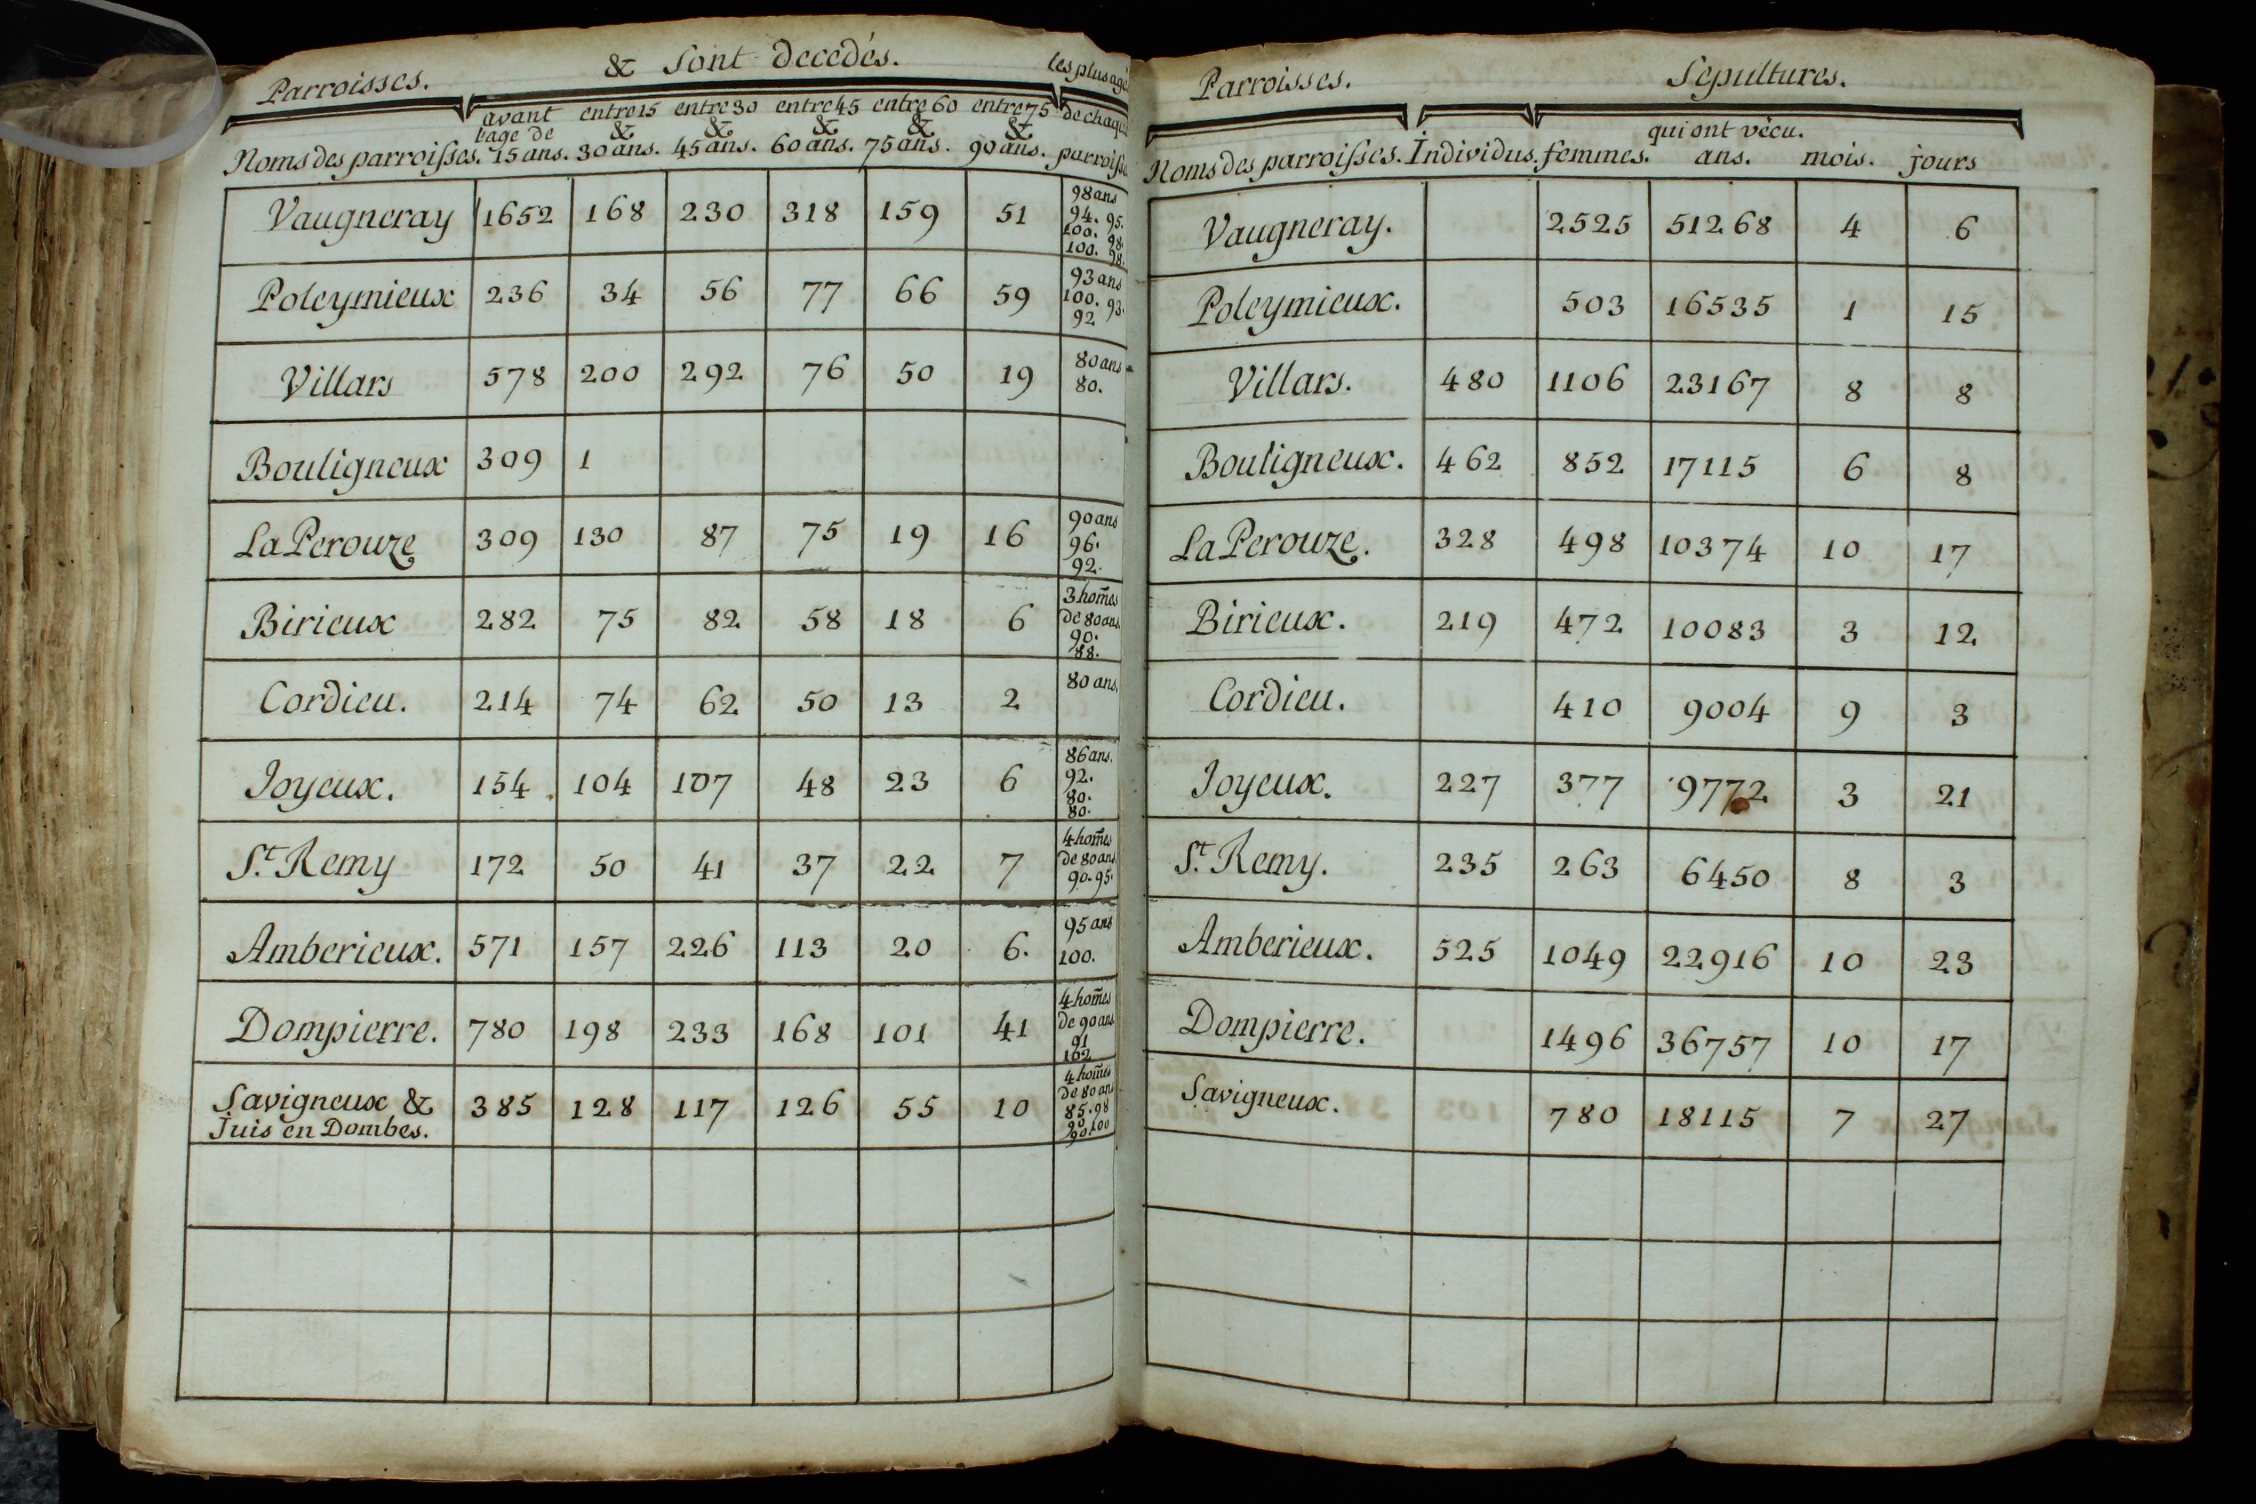 Parroisses. & Sont decedés. les plus agé
avant entre 15 entre 30 entre 45 entre 60 entre 75 de chaqu
l'age de & & & & &
Noms des parroisses. 15 ans. 30 ans. 45 ans. 60 ans. 75 ans. 90 ans. parroiss
Vaugneray 1652 168 230 318 159 51 98 ans
94. 95.
100. 98.
100. 98.
Poleymieux 236 34 56 77 66 59 93 ans
100. 93.
92
Villars 578 200 292 76 50 19 80 ans
80.
Bouligneux 309 1
La Perouze 309 130 87 75 19 16 90 ans
96.
92.
Birieux 282 75 82 58 18 6 3 hom̃es
de 80 ans
90.
88.
Cordieu. 214 74 62 50 13 2 80 ans.
Joyeux. 154 104 107 48 23 6 86 ans.
92.
80.
80.
St. Remy 172 50 41 37 22 7 4 hom̃es
de 80 ans
90. 95.
Amberieux. 571 157 226 113 20 6. 95 ans
100.
Dompierre. 780 198 233 168 101 41 4 hom̃es
de 90 ans
91
102
Savigneux & 385 128 117 126 55 10 4 hom̃es
Juis en Dombes. de 80 ans
85. 98
90. 100
90.
Parroisses. Sepultures.
qui ont vécu.
Noms des parroisses. Individus. femmes. ans. mois. jours
Vaugneray. 2525 51268 4 6
Poleymieux. 503 16535 1 15
Villars. 480 1106 23167 8 8
Bouligneux. 462 852 17115 6 8
La Perouze. 328 498 10374 10 17
Birieux. 219 472 10083 3 12
Cordieu. 410 9004 9 3
Joyeux. 227 377 9772 3 21
St. Remy. 235 263 6450 8 3
Amberieux. 525 1049 22916 10 23
Dompierre. 1496 36757 10 17
Savigneux. 780 18115 7 27